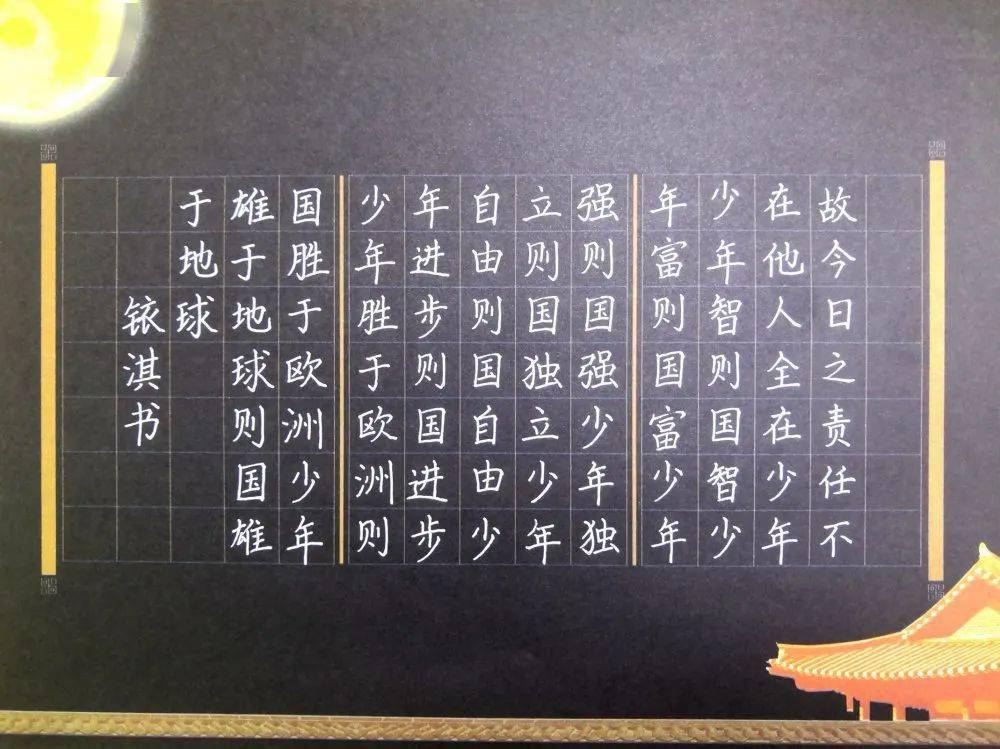 故今日之责任不
在他人全在少年
少年智则国智少
年富则国富少年
强则国强少年独
立则国独立少年
自由则国自由少
年进步则国进步
少年胜于欧洲则
国胜于欧洲少年
雄于地球则国雄
于地球
铱淇书